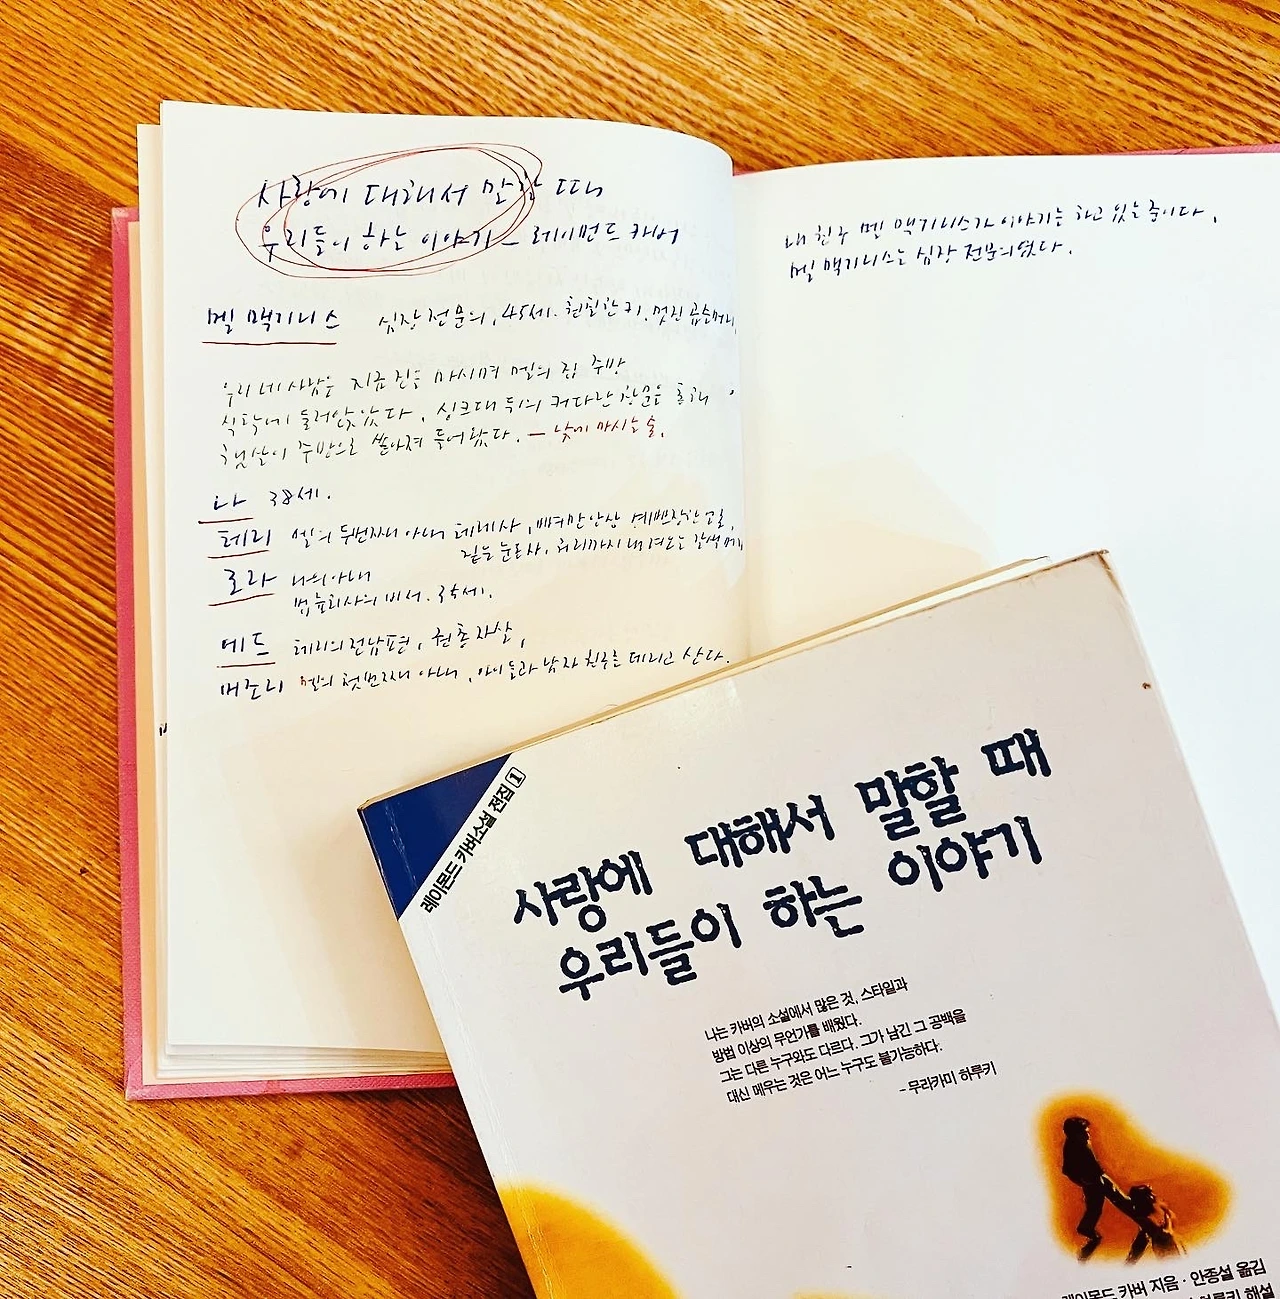 사랑에 대해서 말할 때
우리들이 하는 이야기 – 레이먼드 카버
멜 맥기니스 심장 전문의, 45세. 훤칠한 키. 멋진 곱슬머리,
우리 네 사람은 지금 진을 마시며 멜의 집 주방
식탁에 둘러앉았다. 싱크대 뒤의 커다란 창문을 통해
햇살이 주방으로 쏟아져 들어왔다. – 낮에 마시는 술.
나 38세.
테리 멜의 두번째 아내 테레사, 빼빼한 인상 예쁘장한 얼굴,
짙은 눈동자. 허리까지 내려오는 갈색 머리
로라 나의 아내
법률회사의 비서. 35세.
에드 테리의 전남편, 권총 자살,
매조리 멜의 첫번째 아내, 아이들과 남자 친구를 데리고 산다.
내 친구 멜 맥기니스가 이야기를 하고 있는 중이다.
멜 맥기니스는 심장 전문의였다.
레이몬드 카버소설 전집 1
사랑에 대해서 말할 때
우리들이 하는 이야기
나는 카버의 소설에서 많은 것, 스타일과
방법 이상의 무언가를 배웠다.
그는 다른 누구와도 다르다. 그가 남긴 그 공백을
대신 메우는 것은 어느 누구도 불가능하다.
- 무라카미 하루키
레이몬드 카버 지음 · 안종설 옮김
하루키 해설